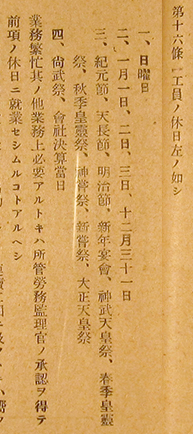 第十六條 工員ノ休日左ノ如シ
一、日曜日
二、一月一日、二日、三日、十二月三十一日
三、紀元節、天長節、明治節、新年宴會、神武天皇祭、春季皇靈
祭、秋季皇靈祭、神嘗祭、新嘗祭、大正天皇祭
四、尙武祭、會社決算當日
業務繁忙其ノ他業務上必要アルトキハ所管勞務監理官ノ承認ヲ得テ
前項ノ休日ニ就業セシムルコトアルヘシ